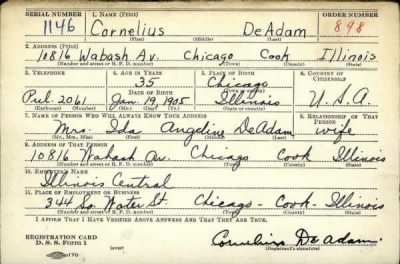 SERIAL NUMBER 1. NAME (Print) ORDER NUMBER
1146 Cornelius DeAdam 898
(First) (Middle) (Last)
2. ADDRESS (Print)
10816 Wabash Av. Chicago Cook Illinois
(Number and street or R. F. D. number) (Town) (County) (State)
3. TELEPHONE 4. AGE IN YEARS 5. PLACE OF BIRTH 6. COUNTRY OF CITIZENSHIP
35 Chicago
DATE OF BIRTH (Town or county)
Pul. 2061 Jan. 19, 1905 Illinois U.S.A.
(Exchange) (Number) (Mo.) (Day) (Yr.) (State or country)
7. NAME OF PERSON WHO WILL ALWAYS KNOW YOUR ADDRESS 8. RELATIONSHIP OF THAT PERSON
Mrs. Ida Angeline DeAdam wife
(Mr., Mrs., Miss) (First) (Middle) (Last)
9. ADDRESS OF THAT PERSON
10816 Wabash Av. Chicago Cook Illinois
(Number and street or R. F. D. number) (Town) (County) (State)
10. EMPLOYER'S NAME
Illinois Central
11. PLACE OF EMPLOYMENT OR BUSINESS
344 So. Water St. Chicago - Cook - Illinois
(Number and street or R. F. D. number) (Town) (County) (State)
I AFFIRM THAT I HAVE VERIFIED ABOVE ANSWERS AND THAT THEY ARE TRUE.
REGISTRATION CARD
D. S. S. Form 1 (over) Cornelius DeAdam
170 (Registrant's signature)